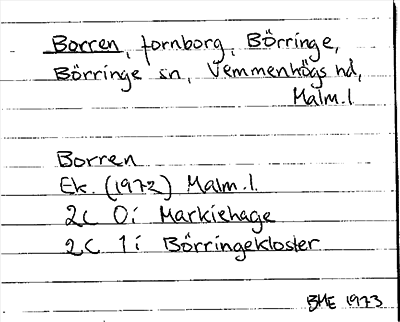 Borren, fornborg, Börringe,
Börringe sn, Vemmenhögs hd,
Malm.l
Borren
Ek. (1972) Malm.l.
2C 0i Markiehage
2C 1i Börringekloster
BME 1973